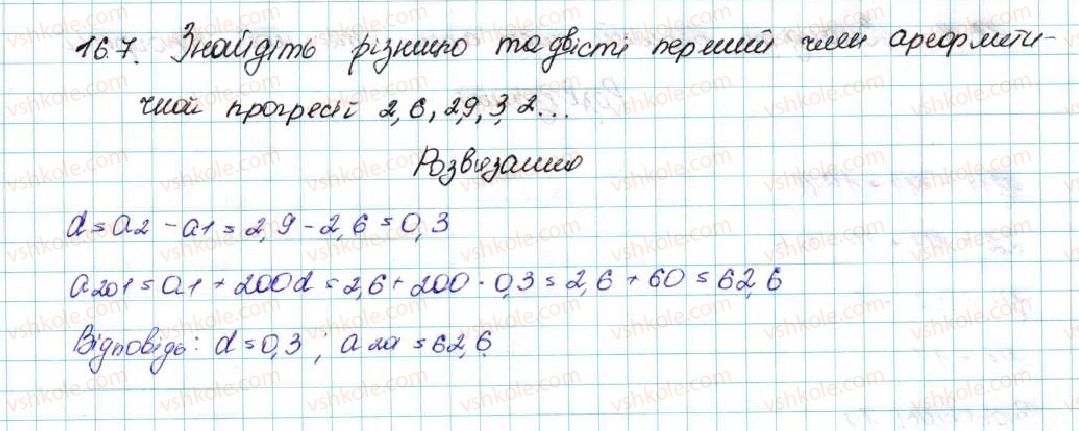 16.7. Знайдіть різницю та двісті перший член арефмети-
чной прогресії 2,6, 2,9, 3,2...
Розвязання
d = a2 - a1 = 2,9 - 2,6 = 0,3
a201 = a1 + 200d = 2,6 + 200 · 0,3 = 2,6 + 60 = 62,6
Відповідь: d = 0,3; a201 = 62,6
vshkole.com